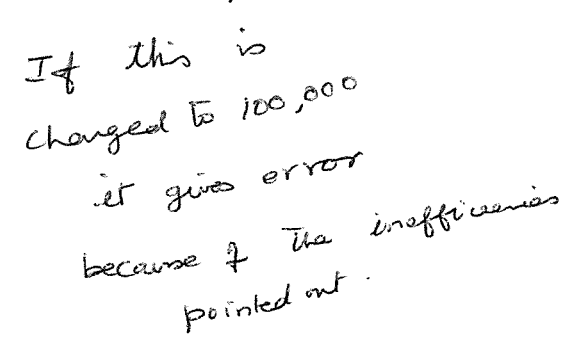 If this is
changed to 100,000
it gives error
because of the inefficiencies
pointed out.